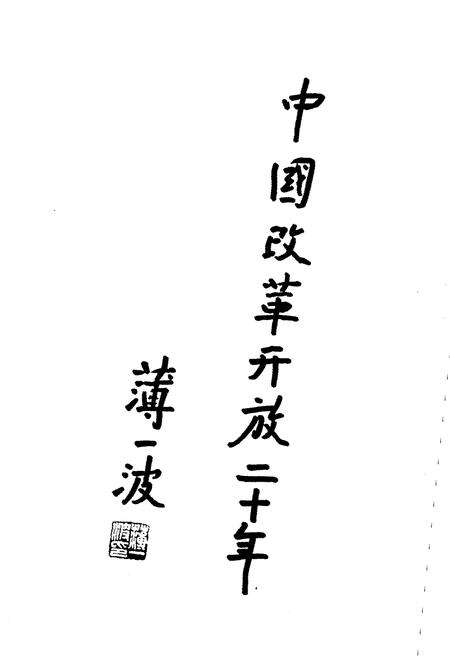 中國改革开放二十年
薄一波